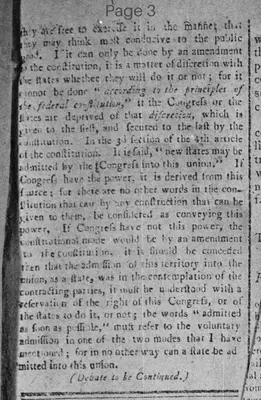 Page 3
they are free to exercise it in the manner that
they may think most conducive to the public
good. If it can only be done by an amendment
to the constitution, it is a matter of discretion with
the states whether they will do it or not; for it
cannot be done "according to the principles of
the federal constitution," if the Congress or the
states are deprived of that discretion, which is
given to the first, and secured to the last by the
constitution. In the 3d section of the 4th article
of the constitution. It is said, "new states may be
admitted by the Congress into this union." If
Congress have the power, it is derived from this
source; for there are no other words in the con-
stitution that can by any construction that can be
given to them, be considered as conveying this
power. If Congress have not this power, the
constitutional mode would be by an amendment
to the constitution. it it should be conceded
then that the admission of this territory into the
union, as a state, was in the contemplation of the
contracting parties, it must be understood with a
reservation of the right of this Congress, or of
the states to do it, or not; the words "admitted
as soon as possible," must refer to the voluntary
admission in one of the two modes that I have
mentioned; for in no other way can a state be ad
mitted into this union.
(Debate to be Continued.)